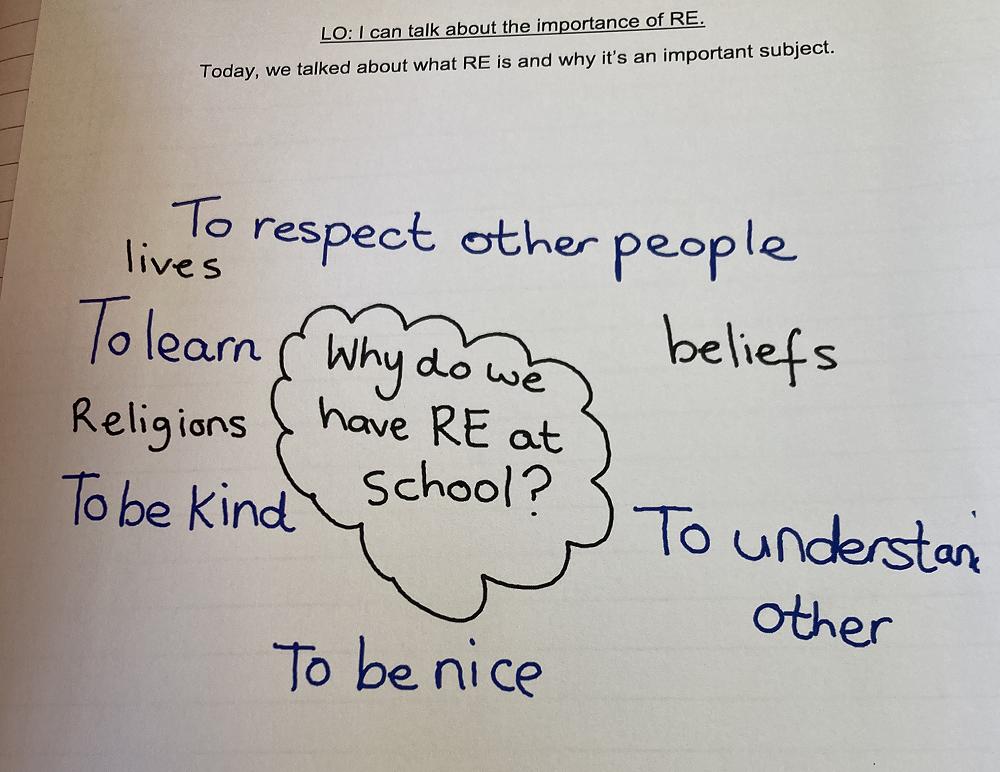 LO: I can talk about the importance of RE.
Today, we talked about what RE is and why it's an important subject.
To respect other people
lives
To learn
beliefs
Religions
Why do we
have RE at
school?
To be kind
other
To be nice